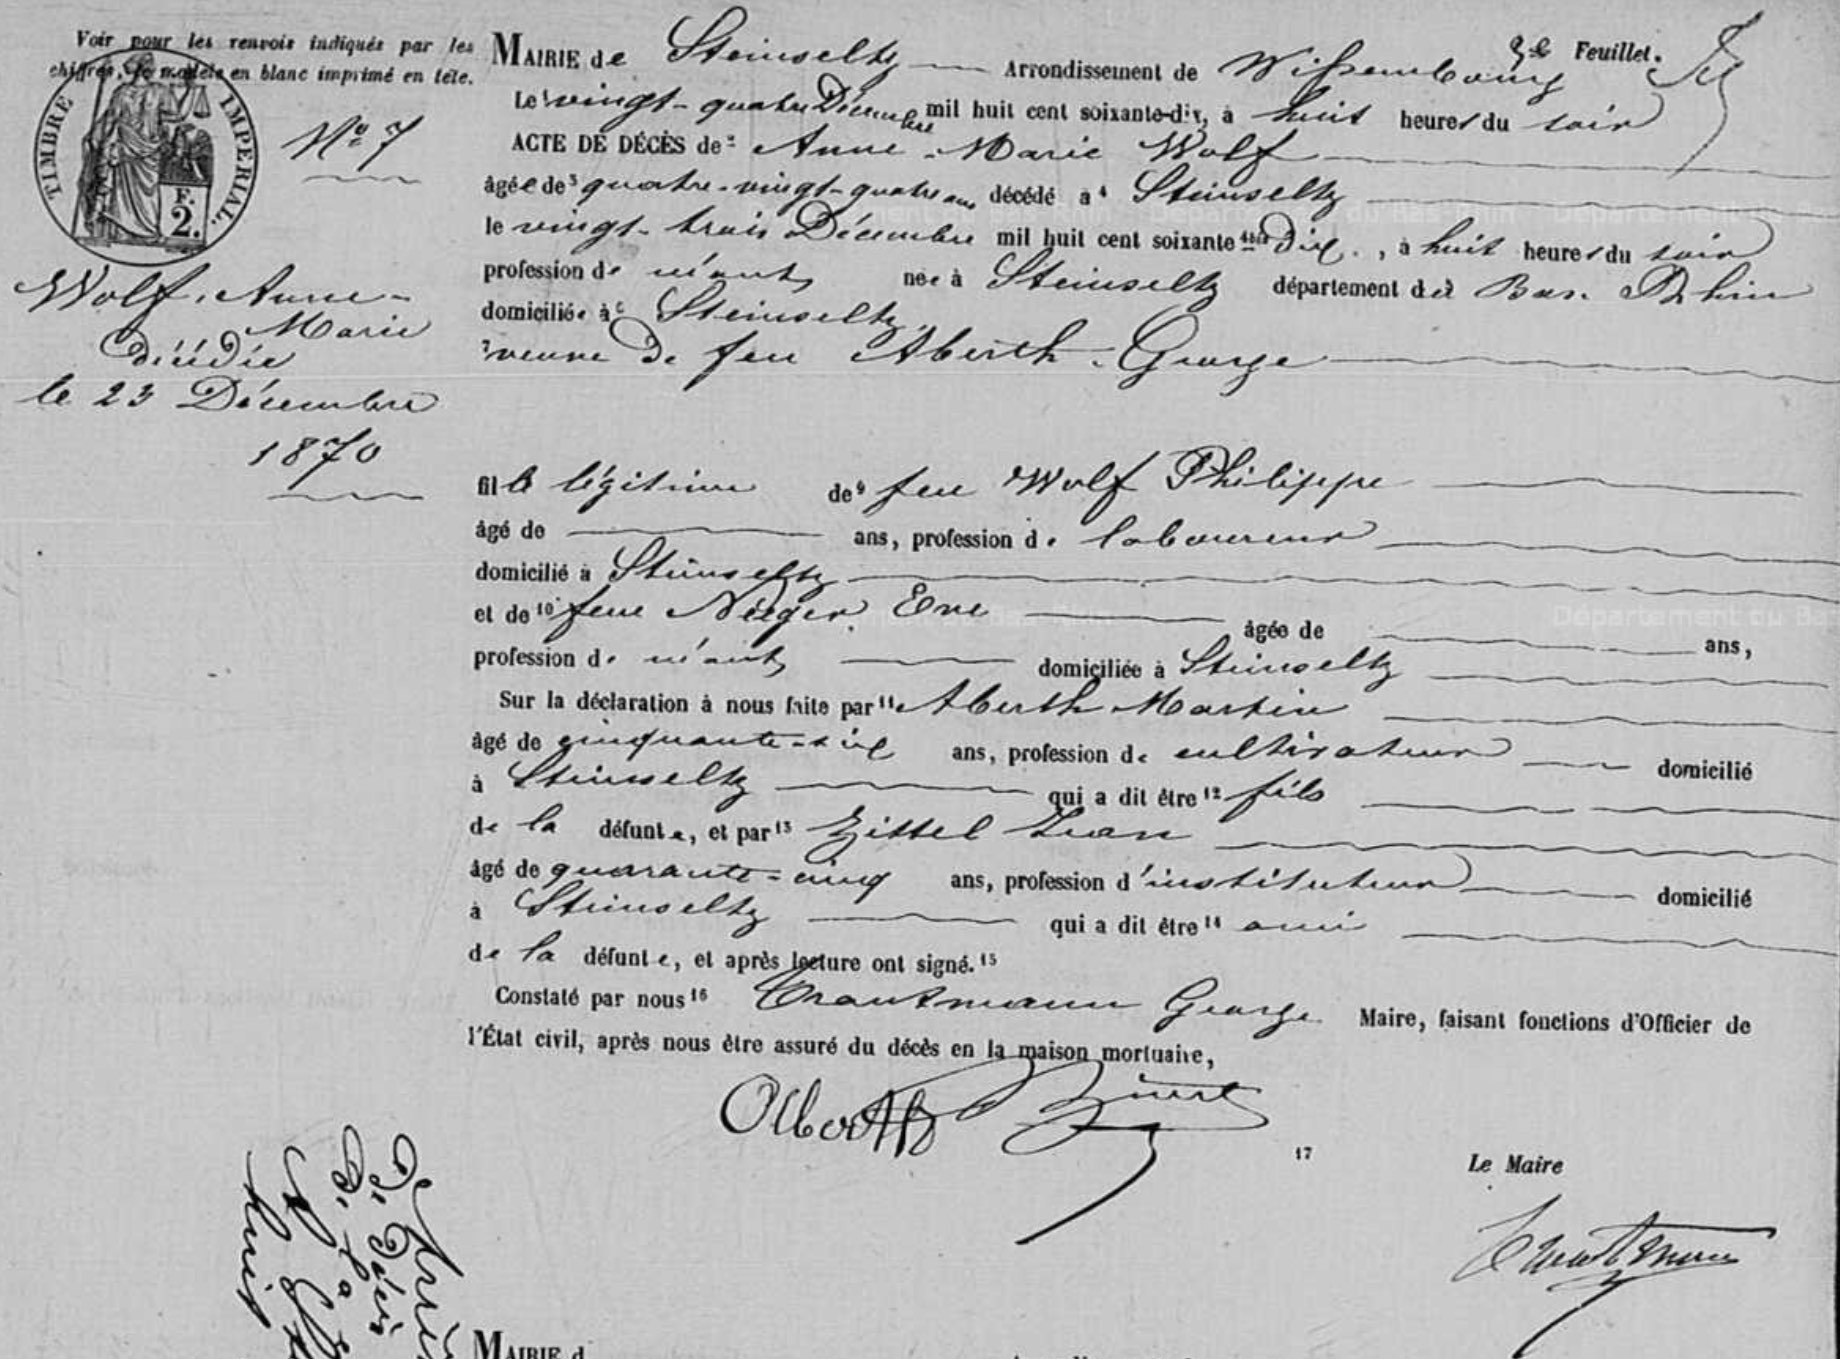 Voir pour les renvois indiqués par les
chiffres, le modèle en blanc imprimé en tête.
TIMBRE IMPÉRIAL.
F.
2.
No 7
Wolf, Anne-
Marie
décédée
le 23 Décembre
1870
MAIRIE de Steinseltz Arrondissement de Wissembourg 3e Feuillet.
Le vingt-quatre Décembre mil huit cent soixante-dix, à huit heures du soir
ACTE DE DÉCÈS de 2 Anne-Marie Wolf
âgée de 3 quatre-vingt-quatre ans décédé à 4 Steinseltz
le vingt-trois Décembre mil huit cent soixante 4 bis dix, à huit heures du soir
profession de néant née à Steinseltz département du Bas-Rhin
domiciliée à 6 Steinseltz
7 veuve de feu Aberth George
fille légitime de 9 feu Wolf Philippe
âgé de ans, profession de laboureur
domicilié à Steinseltz
et de 10 feue Nieger Eve âgée de ans,
profession de néant domiciliée à Steinseltz
Sur la déclaration à nous faite par 11 Aberth Martin
âgé de cinquante-six ans, profession de cultivateur domicilié
à Steinseltz qui a dit être 12 fils
de la défunte, et par 13 Zittel Jean
âgé de quarante-cinq ans, profession d'instituteur domicilié
à Steinseltz qui a dit être 14 ami
de la défunte, et après lecture ont signé. 15
Constaté par nous 16 Trautmann George Maire, faisant fonctions d'Officier de
l'État civil, après nous être assuré du décès en la maison mortuaire,
Alberth
17
Le Maire
Trautmann
MAIRIE d